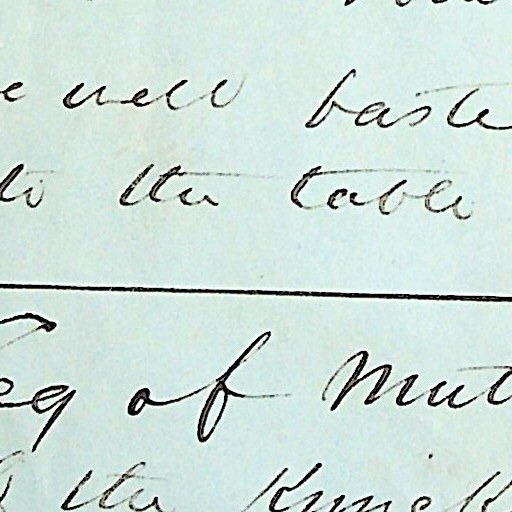 e well baste
to the table
Leg of Mut
the Knuck